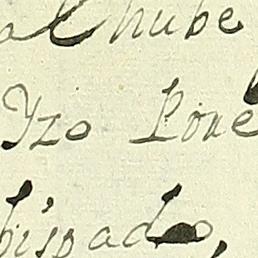 al hube
Yzo Pone
bispado,